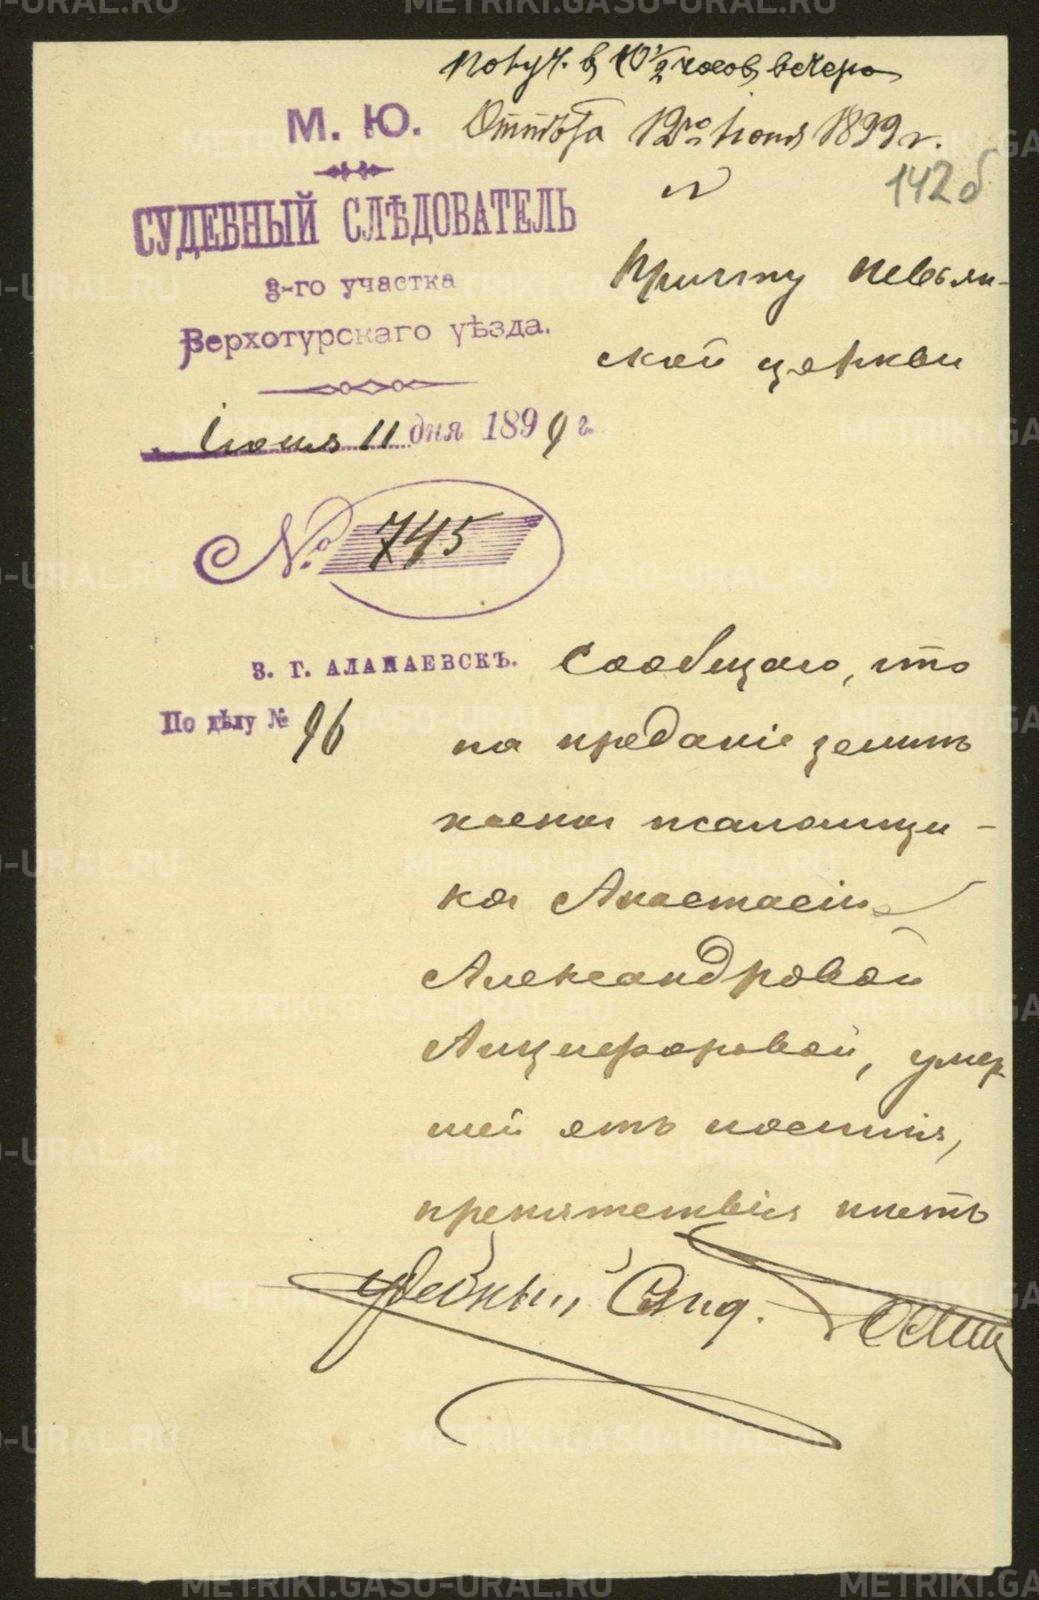 Получ. в 10 1/2 часов вечера
12го Iюня 1899 г.
142об
М. Ю.
СУДЕБНЫЙ СЛѢДОВАТЕЛЬ
3-го участка
Верхотурскаго уѣзда.
Iюня 11 дня 1899 г.
№ 745
З. Г. АЛАПАЕВСКЪ.
По дѣлу № 96
Причту Невьян-
ской церкви
Сообщаю, что
на преданіе землѣ
жены псаломщи-
ка Анастасіи
Александровой
Анциферовой, умер
шей отъ
препятствія нѣтъ
Судебный Слѣд.
METRIKI.GASO-URAL.RU